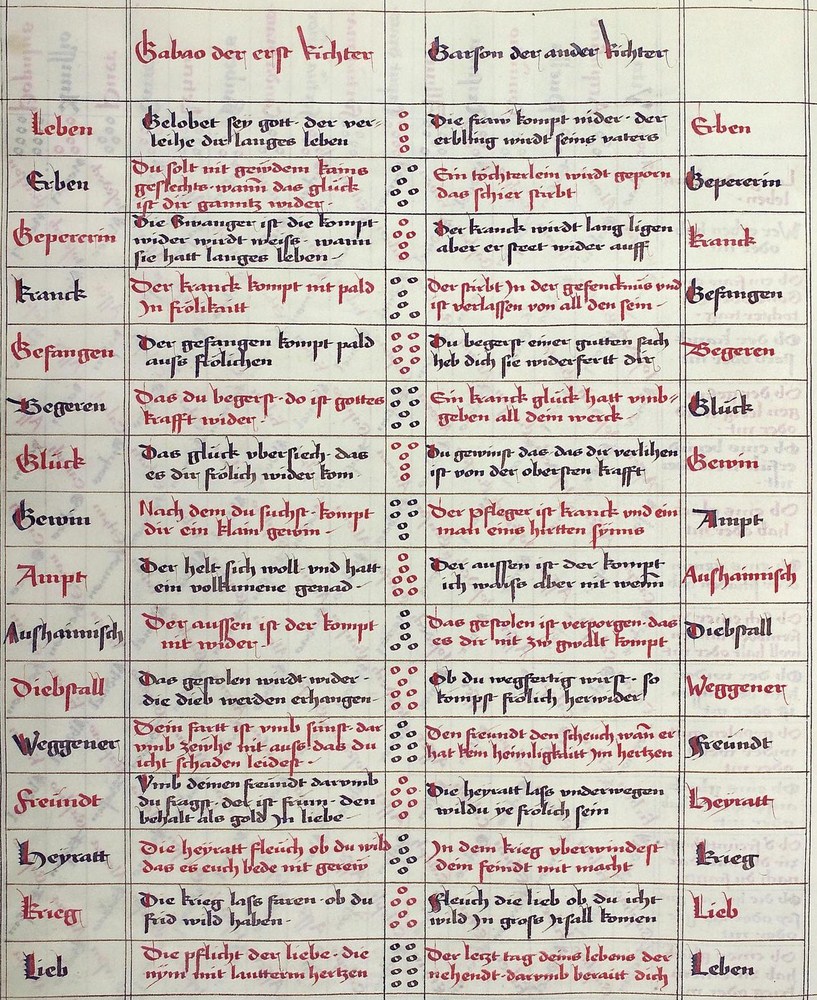 Gabao der erst Richter
Garson der ander Richter
Leben
Gelobet sey gott · der ver=
leihe dir langes leben
Die fraw kompt nider · der
erbling wirdt seins vaters
Erben
Erben
Du solt nit geiwdem kains
geslechts · wann das glück
ist dir ganntz wider ·
Ein töchterlein wirdt geporn
das schier stirbt
Gepererin
Gepererin
Die Swanger ist die kompt
wider wirdt weiss · wann
sie hatt langes leben ·
Der kranck wirdt lang ligen
aber er steet wider auff
Kranck
Kranck
Der kranck kompt nit pald
Jn frölikaitt
Der stirbt Jn der gefencknüs vnd
ist verlassen von all den sein ·
Gefangen
Gefangen
Der gefangen kompt pald
auss frölichen
Du begerst einer gutten sach
heb dich sie widerfertt dir
Begeren
Begeren
Das du begerst · do ist gottes
krafft wider ·
Ein kranck glück hatt vmb=
geben all dein werck ·
Glück
Glück
Das glück vbersiech · das
es dir frölich wider kom ·
Du gewinst das · das dir verlihen
ist von der obersten krafft
Gewin
Gewin
Nach dem du suchst · kompt
dir ein klain gewin ·
Der pfleger ist kranck vnd ein
man eins hirtten synns
Ampt
Ampt
Der helt sich woll · vnd hatt
ein volkumene genad ·
Der aussen ist der kompt
ich waiss aber nit wenn
Aushaimisch
Aushaimisch
Der aussen ist der kompt
nit wider ·
Das gestolen ist verporgen · das
es dir nit zw gwalt kompt
Diebstall
Diebstall
Das gestolen wirdt wider ·
die dieb werden erhangen ·
Ob du wegfertig wirst · so
kompst frölich herwider
Weggener
Weggener
Dein fartt ist vmb sünst · dar
vmb zewhe nit auss · das du
icht schaden leidest ·
Den freundt den scheuch wan er
hat kein heimligkaitt Jm hertzen
Freundt
Freundt
Vmb deinen freundt darvmb
du fragst · der ist frum · den
behalt als gold Jn liebe ·
Die heyratt lass vnderwegen
wildu ye frölich sein
Heyratt
Heyratt
Die heyratt fleuch ob du wild
das es euch bede nit gerew
Jn dem krieg vberwindest
dein feindt mit macht
Krieg
Krieg
Die krieg lass faren · ob du
frid wild haben ·
Fleuch die lieb ob du icht
wild Jn gross Jrsall komen
Lieb
Lieb
Die pflicht der liebe · die
nym mit lautterm hertzen
Der letzt tag deins lebens der
nehendt · darvmb beraitt dich
Leben